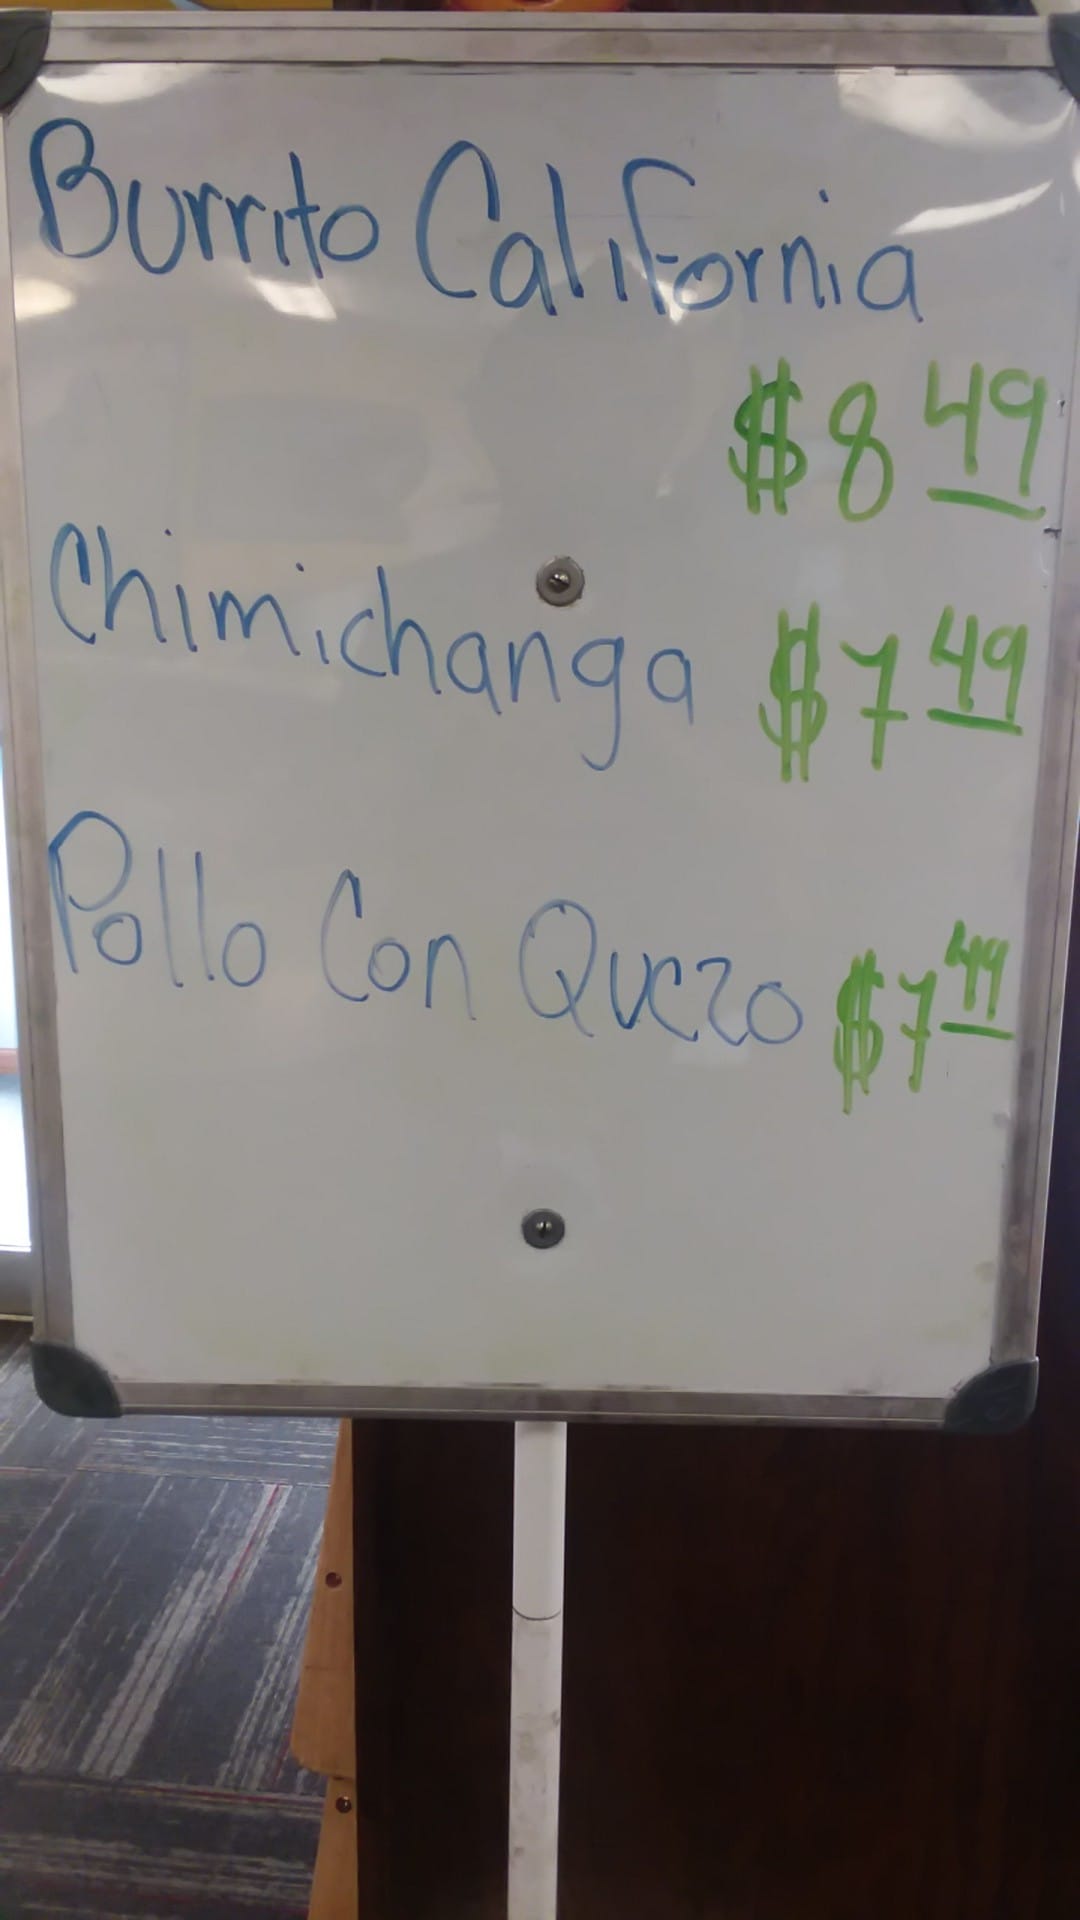 Burrito California
$8 49
Chimichanga $7 49
Pollo Con Quezo $7 49